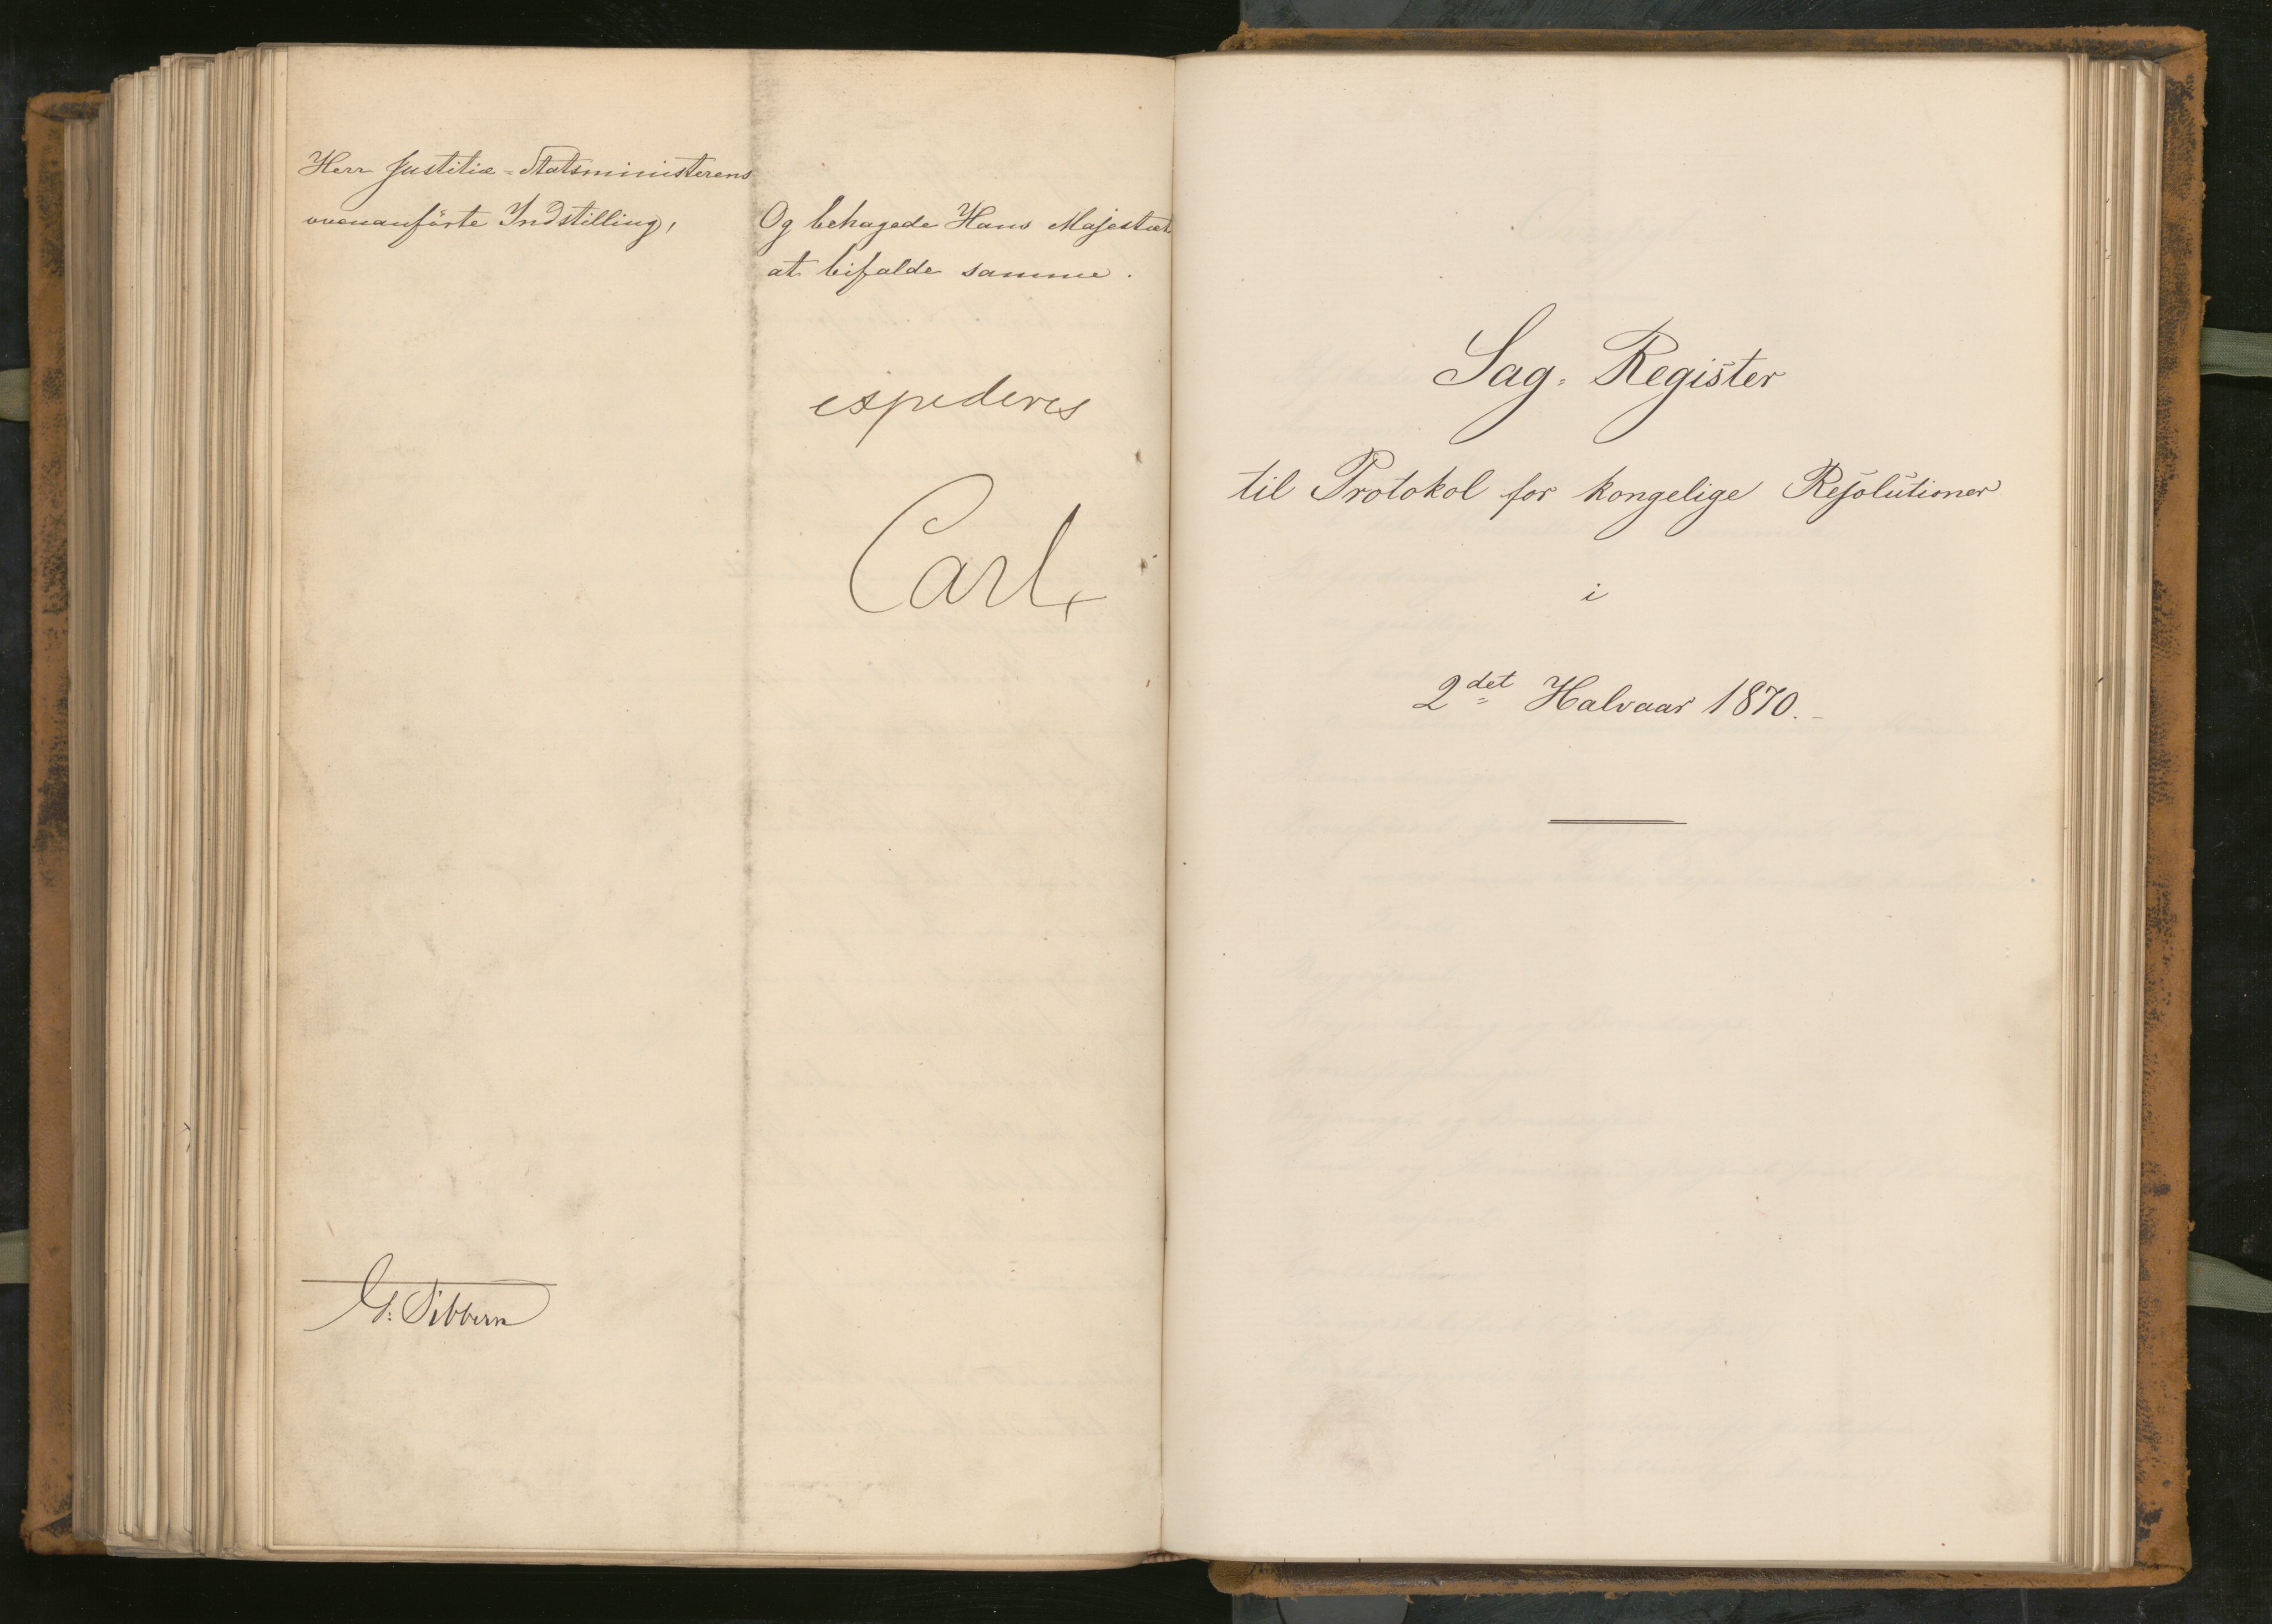 Herr Justitiæ-Statsministerens
ovenanförte Indstilling,
Og behagede Hans Majestæt
at bifalde samme.
expederes
Carl
G. Sibbern
Sag-Register
til Protokol for kongelige Resolutioner
i
2det Halvaar 1870.